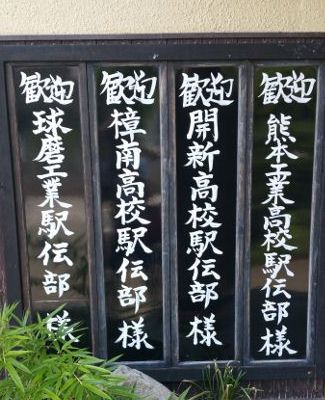 歓迎 熊本工業高校駅伝部 様
歓迎 開新高校駅伝部 様
歓迎 樟南高校駅伝部 様
歓迎 球磨工業駅伝部 様